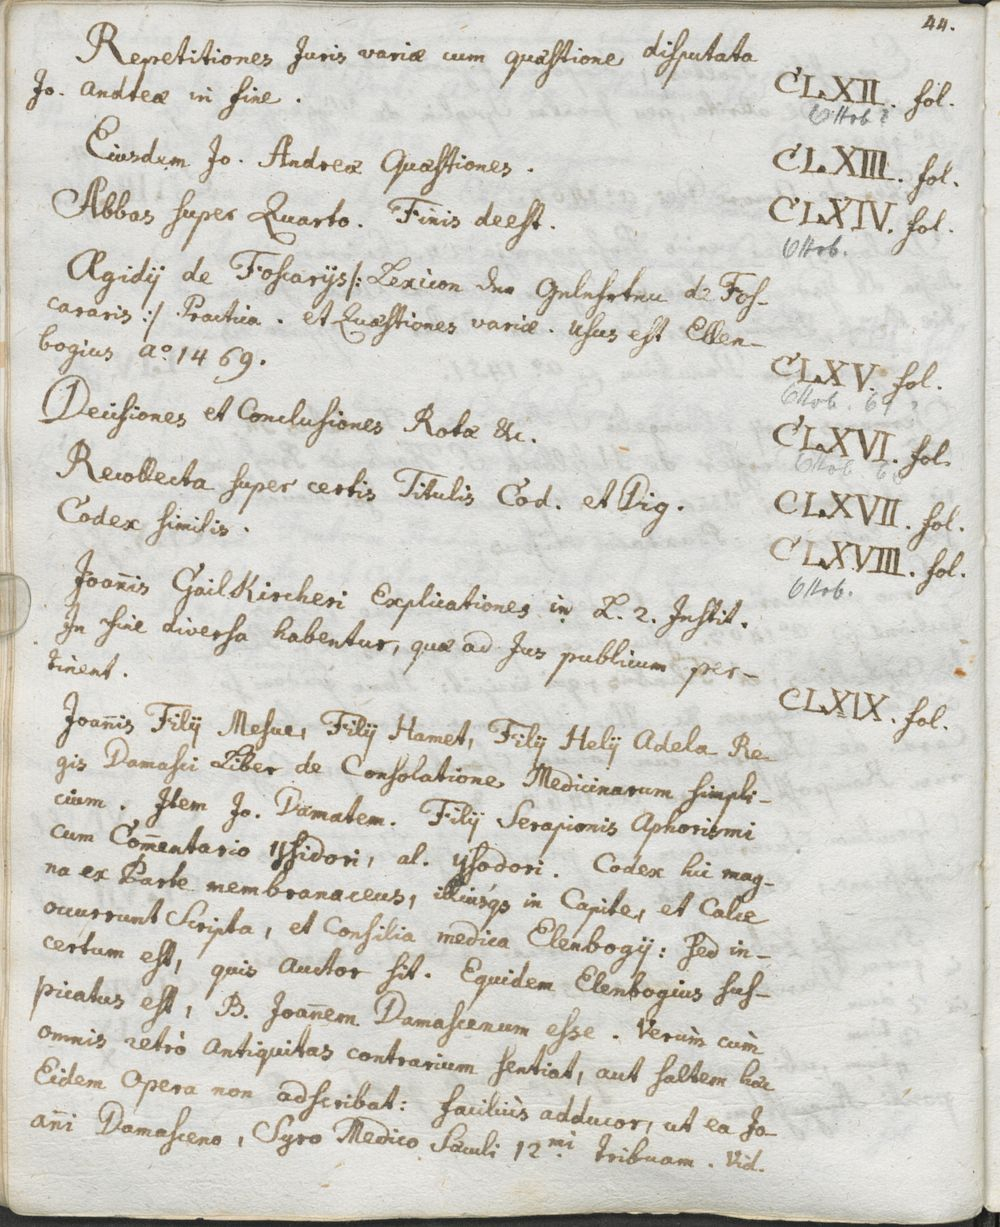 44.
Repetitiones Juris variæ cum quæstione disputata
Jo. Andreæ in fine. CLXII. fol.
Eiusdem Jo. Andreæ Quæstiones. CLXIII. fol.
Abbas super Quarto. Finis deest. CLXIV. fol.
Ottob.
Ægidij de Foscarijs /: Lexicon de Fos-
cararis :/ Practica. et Quæstiones variæ. Usus est Ellen-
bogius aº 1469. CLXV. fol.
Ottob.
Decisiones et Conclusiones Rotæ &c. CLXVI. fol.
Ottob
Recollecta super certis Titulis Cod. et Dig. CLXVII. fol.
Codex similis. CLXVIII. fol.
Ottob.
Joan̄is Gail Kircheri Explicationes in L. 2. Instit.
In fine diversa habentur, quæ ad Jus publicum per-
tinent. CLXIX. fol.
Joan̄is Filij Mesue, Filij Hamet, Filij Helij Adela Re-
gis Damasci Liber de Consolatione Medicinarum simpli-
cium. Item Jo. Damatem. Filij Serapionis Aphorismi
cum Com̄entario ysidori, al. ysodori. Codex hic mag-
na ex Parte membranaceus, illiusqs in Capite, et Calce
occurrunt Scripta, et Consilia medica Elenbogij: sed in-
certum est, quis auctor sit. Equidem Elenbogius sus-
picatus est, B. Joan̄em Damascenum esse. Verùm cùm
omnis retrò antiquitas contrarium sentiat, aut saltem hæc
Eidem Opera non adscribat: faciliùs adducor, ut ea Jo-
an̄i Damasceno, Syro Medico Sæculi 12mi tribuam. Vid.